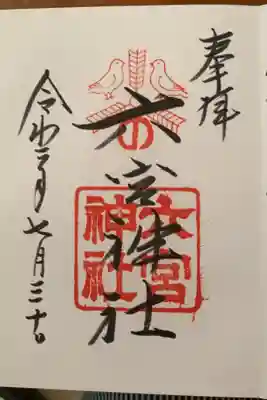 奉拝
六宮神社
六宮神社
令和三年七月三十日